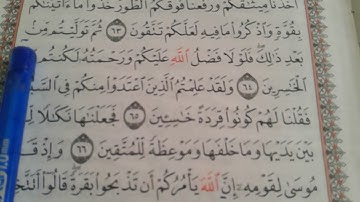 أَخَذْنَا مِيثَٰقَكُمْ وَرَفَعْنَا فَوْقَكُمُ ٱلطُّورَ خُذُوا۟ مَآ ءَاتَيْنَٰكُم
بِقُوَّةٍ وَٱذْكُرُوا۟ مَا فِيهِ لَعَلَّكُمْ تَتَّقُونَ ٦٣ ثُمَّ تَوَلَّيْتُم مِّنۢ
بَعْدِ ذَٰلِكَ ۖ فَلَوْلَا فَضْلُ ٱللَّهِ عَلَيْكُمْ وَرَحْمَتُهُۥ لَكُنتُم
ٱلْخَٰسِرِينَ ٦٤ وَلَقَدْ عَلِمْتُمُ ٱلَّذِينَ ٱعْتَدَوْا۟ مِنكُمْ فِى ٱلسَّ
فَقُلْنَا لَهُمْ كُونُوا۟ قِرَدَةً خَٰسِـِٔينَ ٦٥ فَجَعَلْنَٰهَا نَكَٰلًا لِّ
بَيْنَ يَدَيْهَا وَمَا خَلْفَهَا وَمَوْعِظَةً لِّلْمُتَّقِينَ ٦٦ وَإِذْ قَ
مُوسَىٰ لِقَوْمِهِۦٓ إِنَّ ٱللَّهَ يَأْمُرُكُمْ أَن تَذْبَحُوا۟ بَقَرَةً ۖ قَالُوٓا۟ أَتَتَّخِ